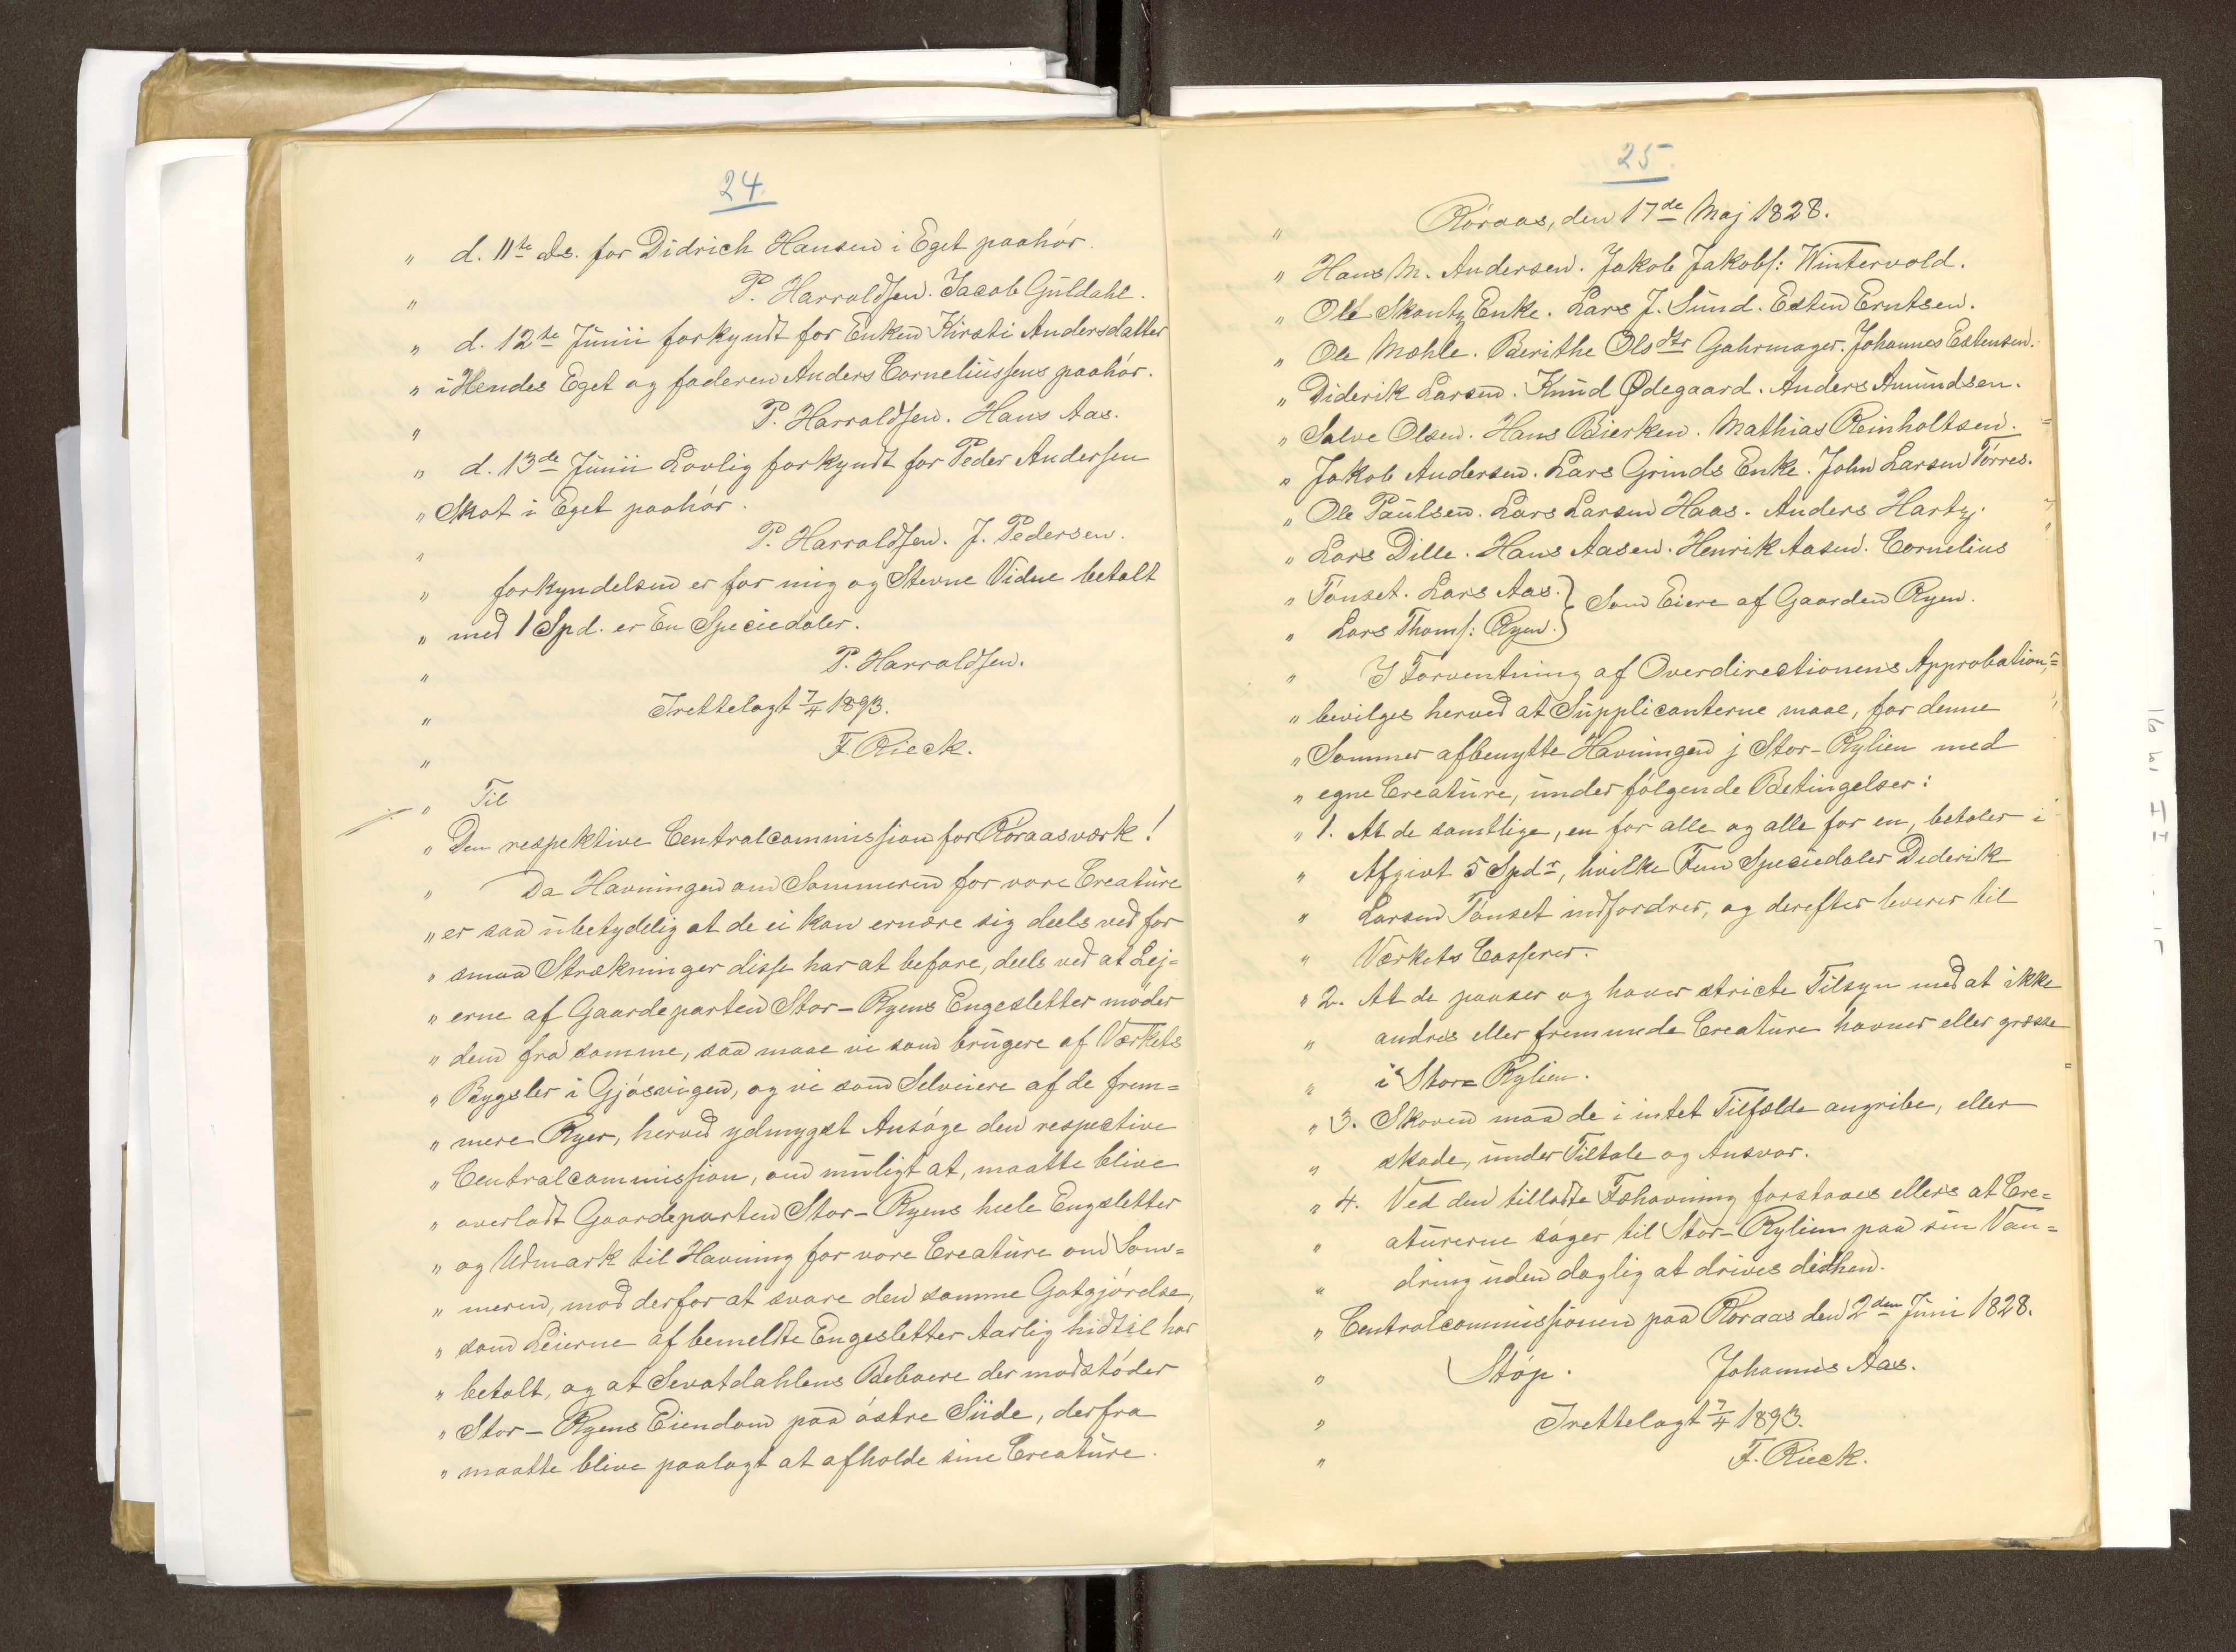 24.
" d. 11te ds. for Didrich Hansen i Eget paahór.
" P. Harroldsen. Jacob Guldahl.
" d. 12te Junii forkyndt for Enken Kirsti Andersdatter
" i Hendes Eget og faderen Anders Corneliussens paahór.
" P. Harroldsen. Hans Aas.
" d. 13de Junii Lovlig forkyndt for Peder Andersen
" Skot i Eget paahór.
" P. Harroldsen. J. Pedersen.
" forkyndelsen er for mig og Stevne Vidne betalt
" med 1 Spd. er En Speciedaler.
" P. Harroldsen.
" Irettelagt 7/4 1893.
" F. Rieck.
" Til
" Den respektive Centralcommission for Róraasværk!
" Da Havningen om Sommeren for vore Creature
" er saa ubetydelig at de ei kan ernære sig deels ved for
" smaa Strækninger disse har at befare, deels ved at Lej=
" erne af Gaardeparten Stor-Ryens Engesletter móder
" dem fra samme, saa maae vi som brugere af Værkets
" Bygsler i Gjósvigen, og vi som Selveiere af de frem=
" mere Ryer, herved ydmygst Ansóge den respective
" Centralcommission, om muligt at, maatte blive
" overladt Gaardeparten Stor-Ryens heele Engsletter
" og Udmark til Havning for vore Creature om Som=
" meren, mod derfor at svare den samme Gotgjórelse,
" som Leierne af bemeldte Engesletter Aarlig hidtil har
" betalt, og at Sevatdahlens Beboere der modstóder
" Stor-Ryens Eiendom paa óstre Siide, derfra
" maatte blive paalagt at afholde sine Creature.
25.
" Róraas, den 17de Maj 1828.
" Hans M. Andersen. Jakob Jakobs: Wintervold.
" Ole Skantz Enke. Lars J. Sund. Esten Erntsen.
" Ole Mæhle. Berithe Olsdtr Gahrmager. Johannes Estensen.
" Diderik Larsen. Knud Ødegaard. Anders Amundsen.
" Salve Olsen. Hans Bierken. Mathias Reinholtsen.
" Jakob Andersen. Lars Grinds Enke. John Larsen Tórres.
" Ole Paulsen. Lars Larsen Haas. Anders Hartz.
" Lars Dille. Hans Aasen. Henrik Aasen. Cornelius
" Tónset. Lars Aas. } Som Eiere af Gaarden Ryen.
" Lars Thoms: Ryen. }
" I Forventning af Overdirectionens Approbation,
" bevilges herved at Supplicanterne maae, for denne
" Sommer afbenytte Havningen j Stor-Rylien med
" egne Creature, under fólgende Betingelser:
" 1. At de samtlige, en for alle og alle for en, betaler i
" Afgivt 5 Spdr, hvilke Fem Speciedaler Dederik
" Larsen Tónset indfordrer, og derefter leverer til
" Værkets Casserer.
" 2. At de passer og haver stricte Tilsyn med at ikke
" andres eller fremmede Creature havner eller græsse
" i Stor=Rylien.
" 3. Skoven maa de i intet Tilfælde angribe, eller
" skade, under Tiltale og Ansvar.
" 4. Ved den tilladte Fæhavning forstaaes ellers at Cre=
" aturerne sóger til Stor-Rylien paa sin Van=
" dring uden daglig at drives didhen.
" Centralcommissionen paa Róraas den 2den Juni 1828.
" Stóp. Johannes Aas.
" Irettelagt 7/4 1893.
" F. Rieck.